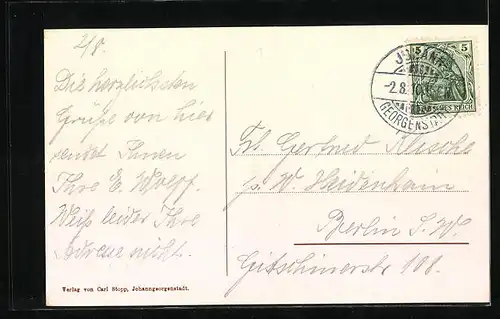 2/8.
Die herzlichsten
Grüße von hier
sendet Ihnen
Ihre E. Wolff.
Weiß leider Ihre
Adresse nicht.
Verlag von Carl Stopp, Johanngeorgenstadt.
5 5
JOHANN-
-2.8.10.
GEORGENSTADT
REICH
Frl. Gertrud
p. W. Heidenhain
Berlin S. W.
Gitschinerstr 108.